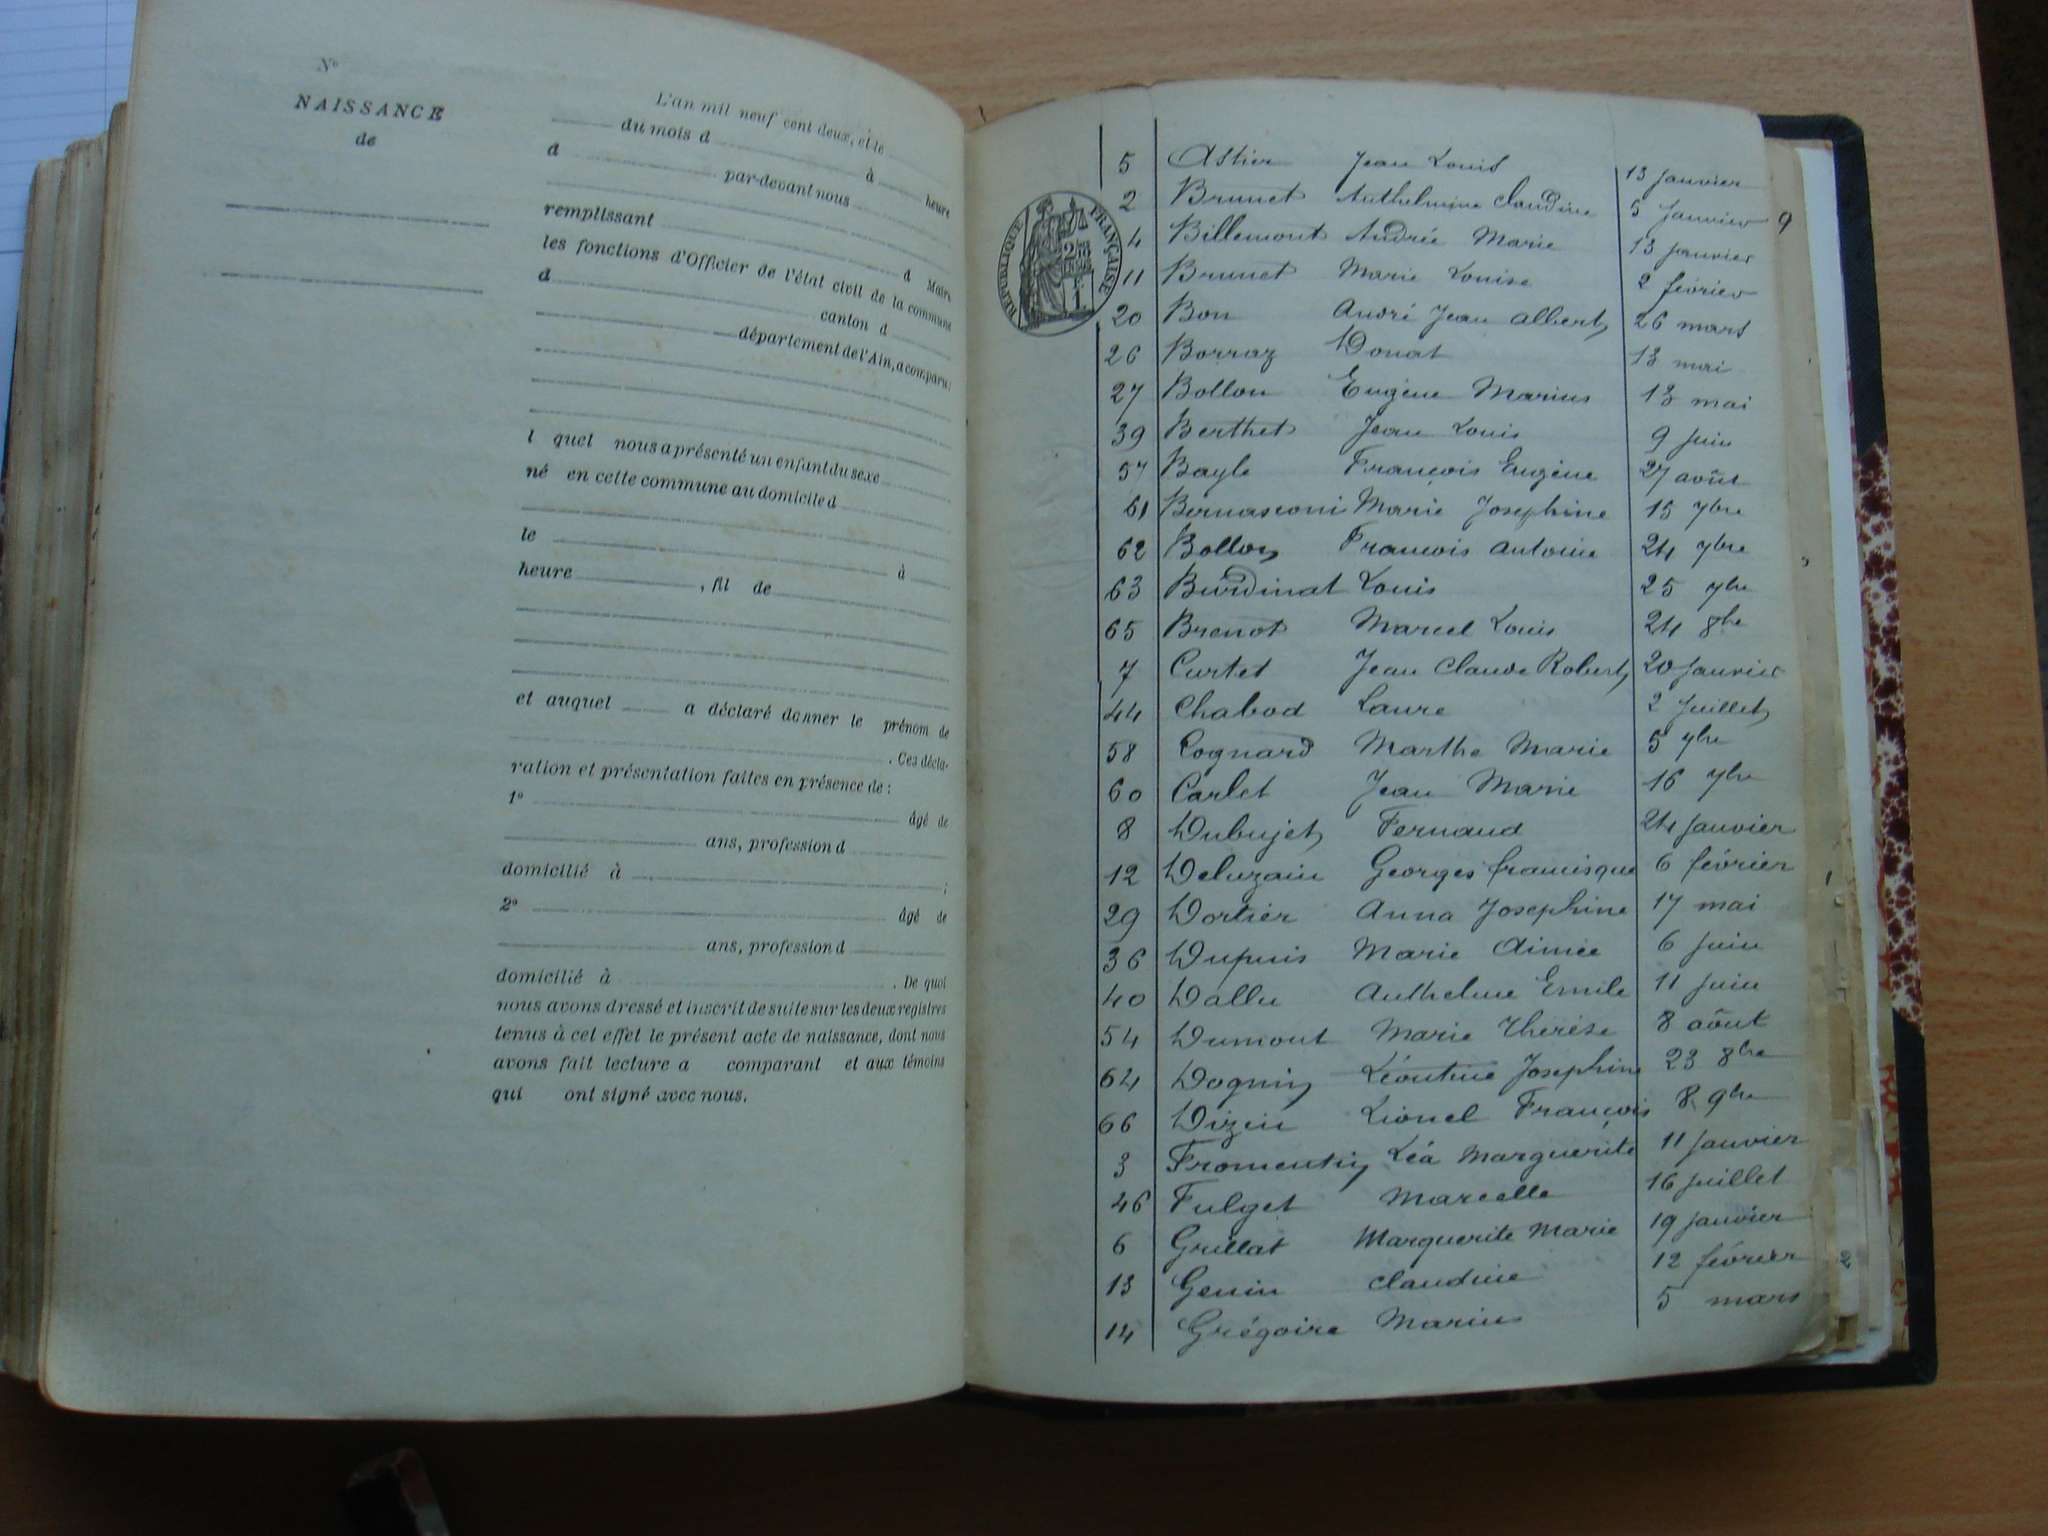 No
NAISSANCE
de
L'an mil neuf cent deux, et le
du mois d à heure
d par-devant nous
remplissant d Maire
les fonctions d'Officier de l'état civil de la commune
d canton d
département de l'Ain, a comparu:
l quel nous a présenté un enfant du sexe
né en cette commune au domicile d
le à
heure , fil de
et auquel a déclaré donner le prénom de
. Ces décla-
ration et présentation faites en présence de :
1o âgé de
ans, profession d
domicilié à ;
2o âgé de
ans, profession d
domicilié à . De quoi
nous avons dressé et inscrit de suite sur les deux registres
tenus à cet effet le présent acte de naissance, dont nous
avons fait lecture a comparant et aux témoins
qui ont signé avec nous.
RÉPUBLIQUE FRANÇAISE
5 Astier Jean Louis 13 janvier
2 Brunet Anthelmine Claudine 5 janvier
4 Billemont Andrée Marie 13 janvier
11 Brunet Marie Louise 2 février
20 Bon André Jean Albert 26 mars
26 Borraz Donat 13 mai
27 Bollon Eugène Marius 13 mai
39 Berthet Jean Louis 9 juin
57 Bayle François Eugène 27 août
61 Bernasconi Marie Josephine 15 7bre
62 Bollon François Antoine 24 7bre
63 Burdinat Louis 25 7bre
65 Brenot Marcel Louis 24 8bre
7 Curtet Jean Claude Robert 20 janvier
44 Chabod Laure 2 juillet
58 Cognard Marthe Marie 5 7bre
60 Carlet Jean Marie 16 7bre
8 Dubujet Fernand 24 janvier
12 Deluzain Georges francisque 6 février
29 Dortier Anna Josephine 17 mai
36 Dupuis Marie Aimée 6 juin
40 Dallu Anthelme Emile 11 juin
54 Dumont Marie Thérèse 8 août
64 Dognin Léontine Josephine 23 8bre
66 Dizin Lionel François 8 9bre
3 Fromentin Léa Marguerite 11 janvier
46 Fulget Marcelle 16 juillet
6 Grillat Marguerite Marie 19 janvier
13 Genin Claudine 12 février
14 Grégoire Marius 5 mars